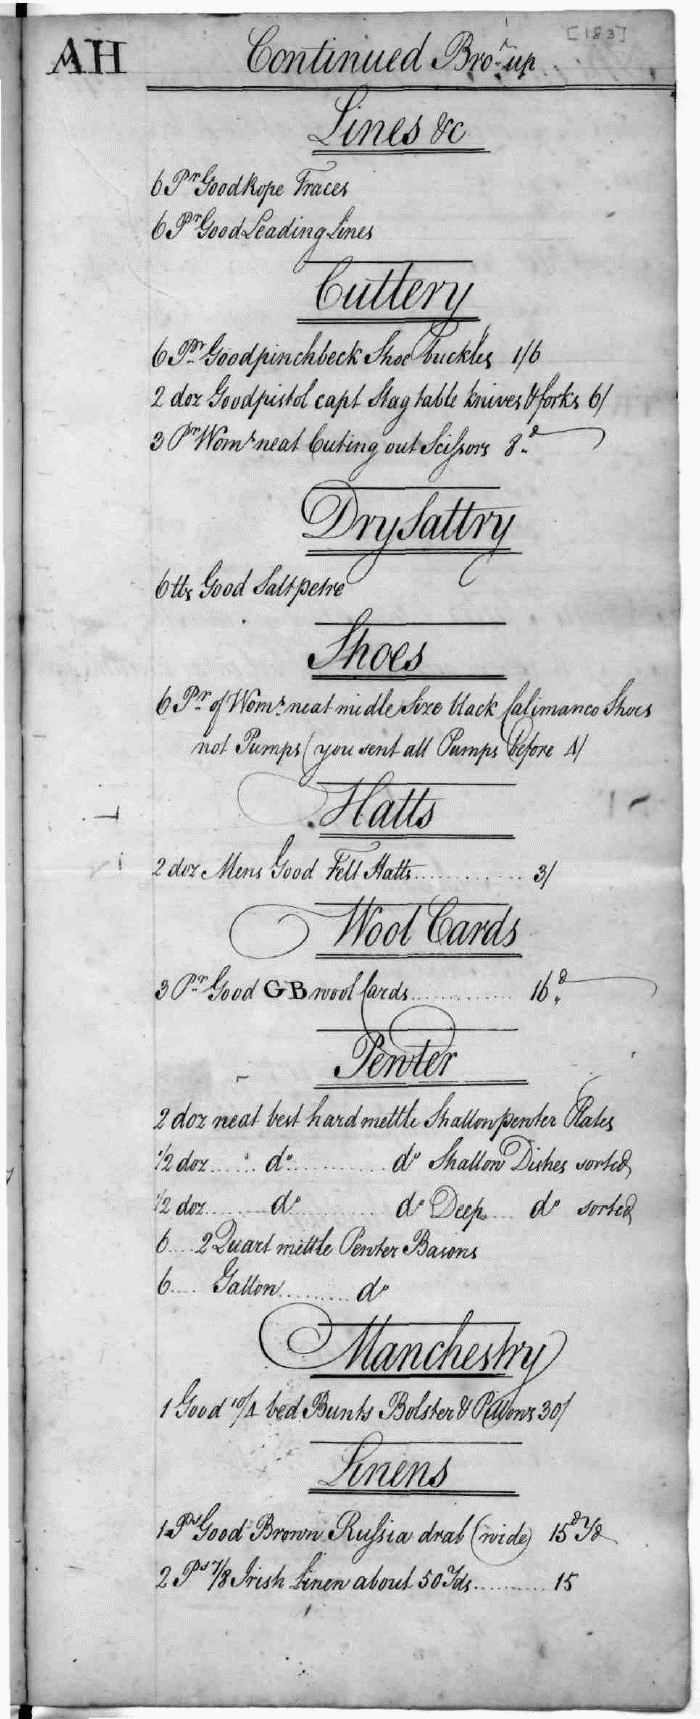 [183]
AH Continued Bro.ᵗ up
Lines &c
6 Pʳ Good Rope Traces
6 Pʳ Good Leading Lines
Cuttery
6 Pʳ Good pinchbeck Shoe buckles 1/6
2 doz Good pistol capt Stag table knives & forks 6/
3 Pʳ Womˢ neat Cuting out Scissors 8.ᵈ
DrySaltry
6 tts Good Saltpetre
Shoes
6 Pʳ of Womˢ neat midle Size black Calimanco Shoes
not Pumps (you sent all Pumps before 4/
Hatts
2 doz Mens Good Felt Hatts............ 3/
Wool Cards
3 Pʳ Good GB wool Cards............ 16.ᵈ
Pewter
2 doz neat best hard mettle Shallow pewter Plates
1/2 doz..... dº............ dº Shallow Dishes sorted
1/2 doz..... dº............ dº Deep.... dº sorted
6.... 2 Quart mettle Pewter Basons
6.... Gallon......... dº
Manchestry
1 Good 10/4 bed Bunts Bolster & Pillows 30/
Linens
1 Pˢ Good Brown Russia drab (wide) 15ᵈ Yᵈ
2 Pˢ 7/8 Irish Linen about 50 Yds.......... 15